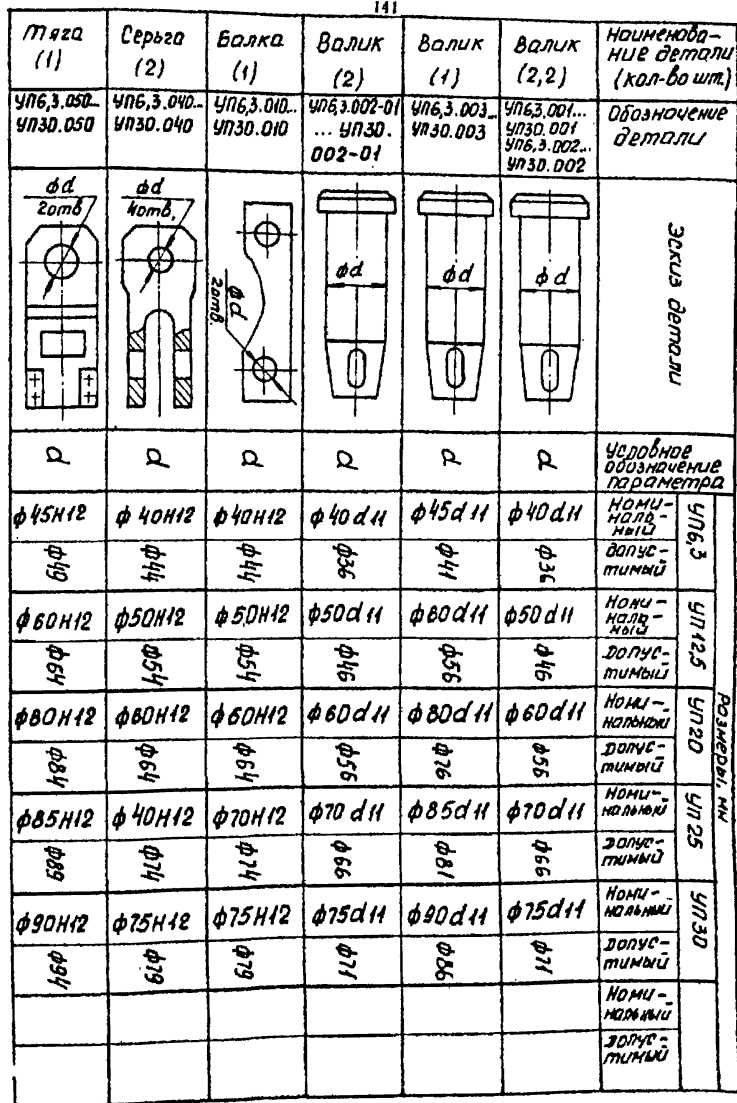 141
Тяга (1) Серьга (2) Балка (1) Валик (2) Валик (1) Валик (2,2) Наименование детали (кол-во шт.)
УП6,3.050... УП30.050 УП6,3.040... УП30.040 УП6,3.010... УП30.010 УП6,3.002-01 ... УП30.002-01 УП6,3.003... УП30.003 УП6,3.001... УП30.001 УП6,3.002... УП30.002 Обозначение детали
ϕd 2отв. ϕd 4отв. ϕd 2отв. ϕd ϕd ϕd Эскиз детали
d d d d d d Условное обозначение параметра
Размеры, мм
ϕ45H12 ϕ40H12 ϕ40H12 ϕ40d11 ϕ45d11 ϕ40d11 Номинальный УП6,3
ϕ49 ϕ44 ϕ44 ϕ36 ϕ41 ϕ36 допустимый
ϕ60H12 ϕ50H12 ϕ50H12 ϕ50d11 ϕ60d11 ϕ50d11 Номинальный УП12,5
ϕ64 ϕ54 ϕ54 ϕ46 ϕ56 ϕ46 допустимый
ϕ80H12 ϕ60H12 ϕ60H12 ϕ60d11 ϕ80d11 ϕ60d11 Номинальный УП20
ϕ84 ϕ64 ϕ64 ϕ56 ϕ76 ϕ56 допустимый
ϕ85H12 ϕ40H12 ϕ70H12 ϕ70d11 ϕ85d11 ϕ70d11 Номинальный УП25
ϕ89 ϕ74 ϕ74 ϕ66 ϕ81 ϕ66 допустимый
ϕ90H12 ϕ75H12 ϕ75H12 ϕ75d11 ϕ90d11 ϕ75d11 Номинальный УП30
ϕ94 ϕ79 ϕ79 ϕ71 ϕ86 ϕ71 допустимый
Номинальный
допустимый